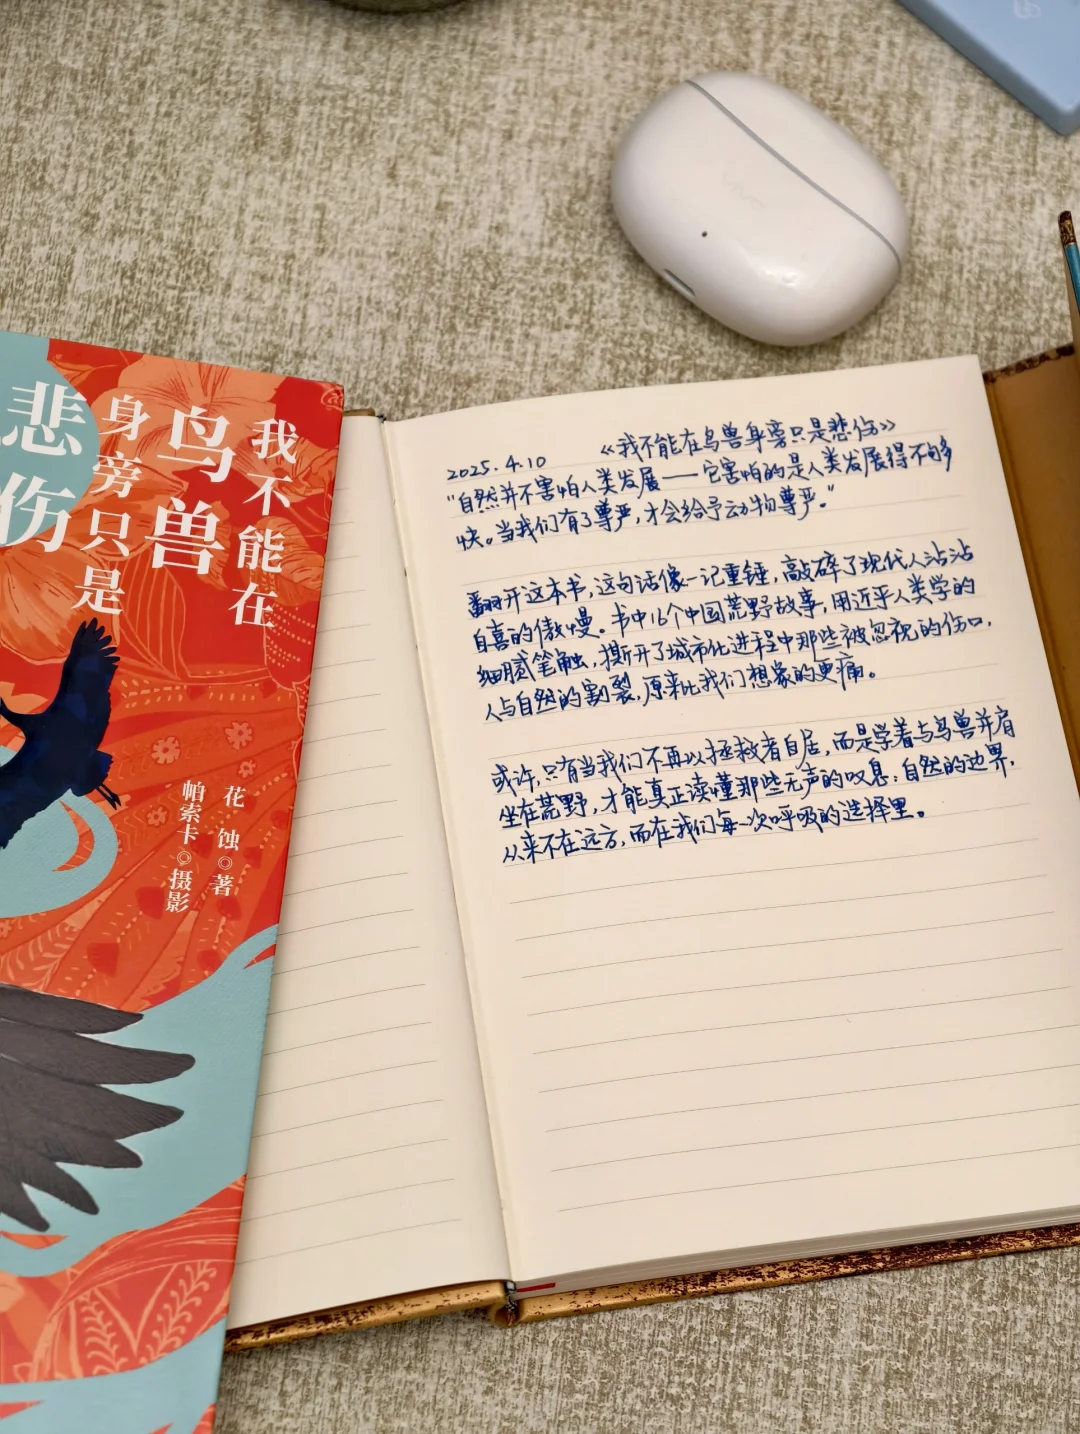 我不能在
鸟兽
身旁只是
悲伤
花蚀◎著
帕索卡◎摄影
2025.4.10 《我不能在鸟兽身旁只是悲伤》
“自然并不害怕人类发展——它害怕的是人类发展得不够
快。当我们有了尊严，才会给予动物尊严。”
翻开这本书，这句话像一记重锤，敲碎了现代人沾沾
自喜的傲慢。书中16个中国荒野故事，用近乎人类学的
细腻笔触，撕开了城市化进程中那些被忽视的伤口，
人与自然的割裂，原来比我们想象的更痛。
或许，只有当我们不再以拯救者自居，而是学着与鸟兽并肩
坐在荒野，才能真正读懂那些无声的叹息：自然的边界，
从来不在远方，而在我们每一次呼吸的选择里。